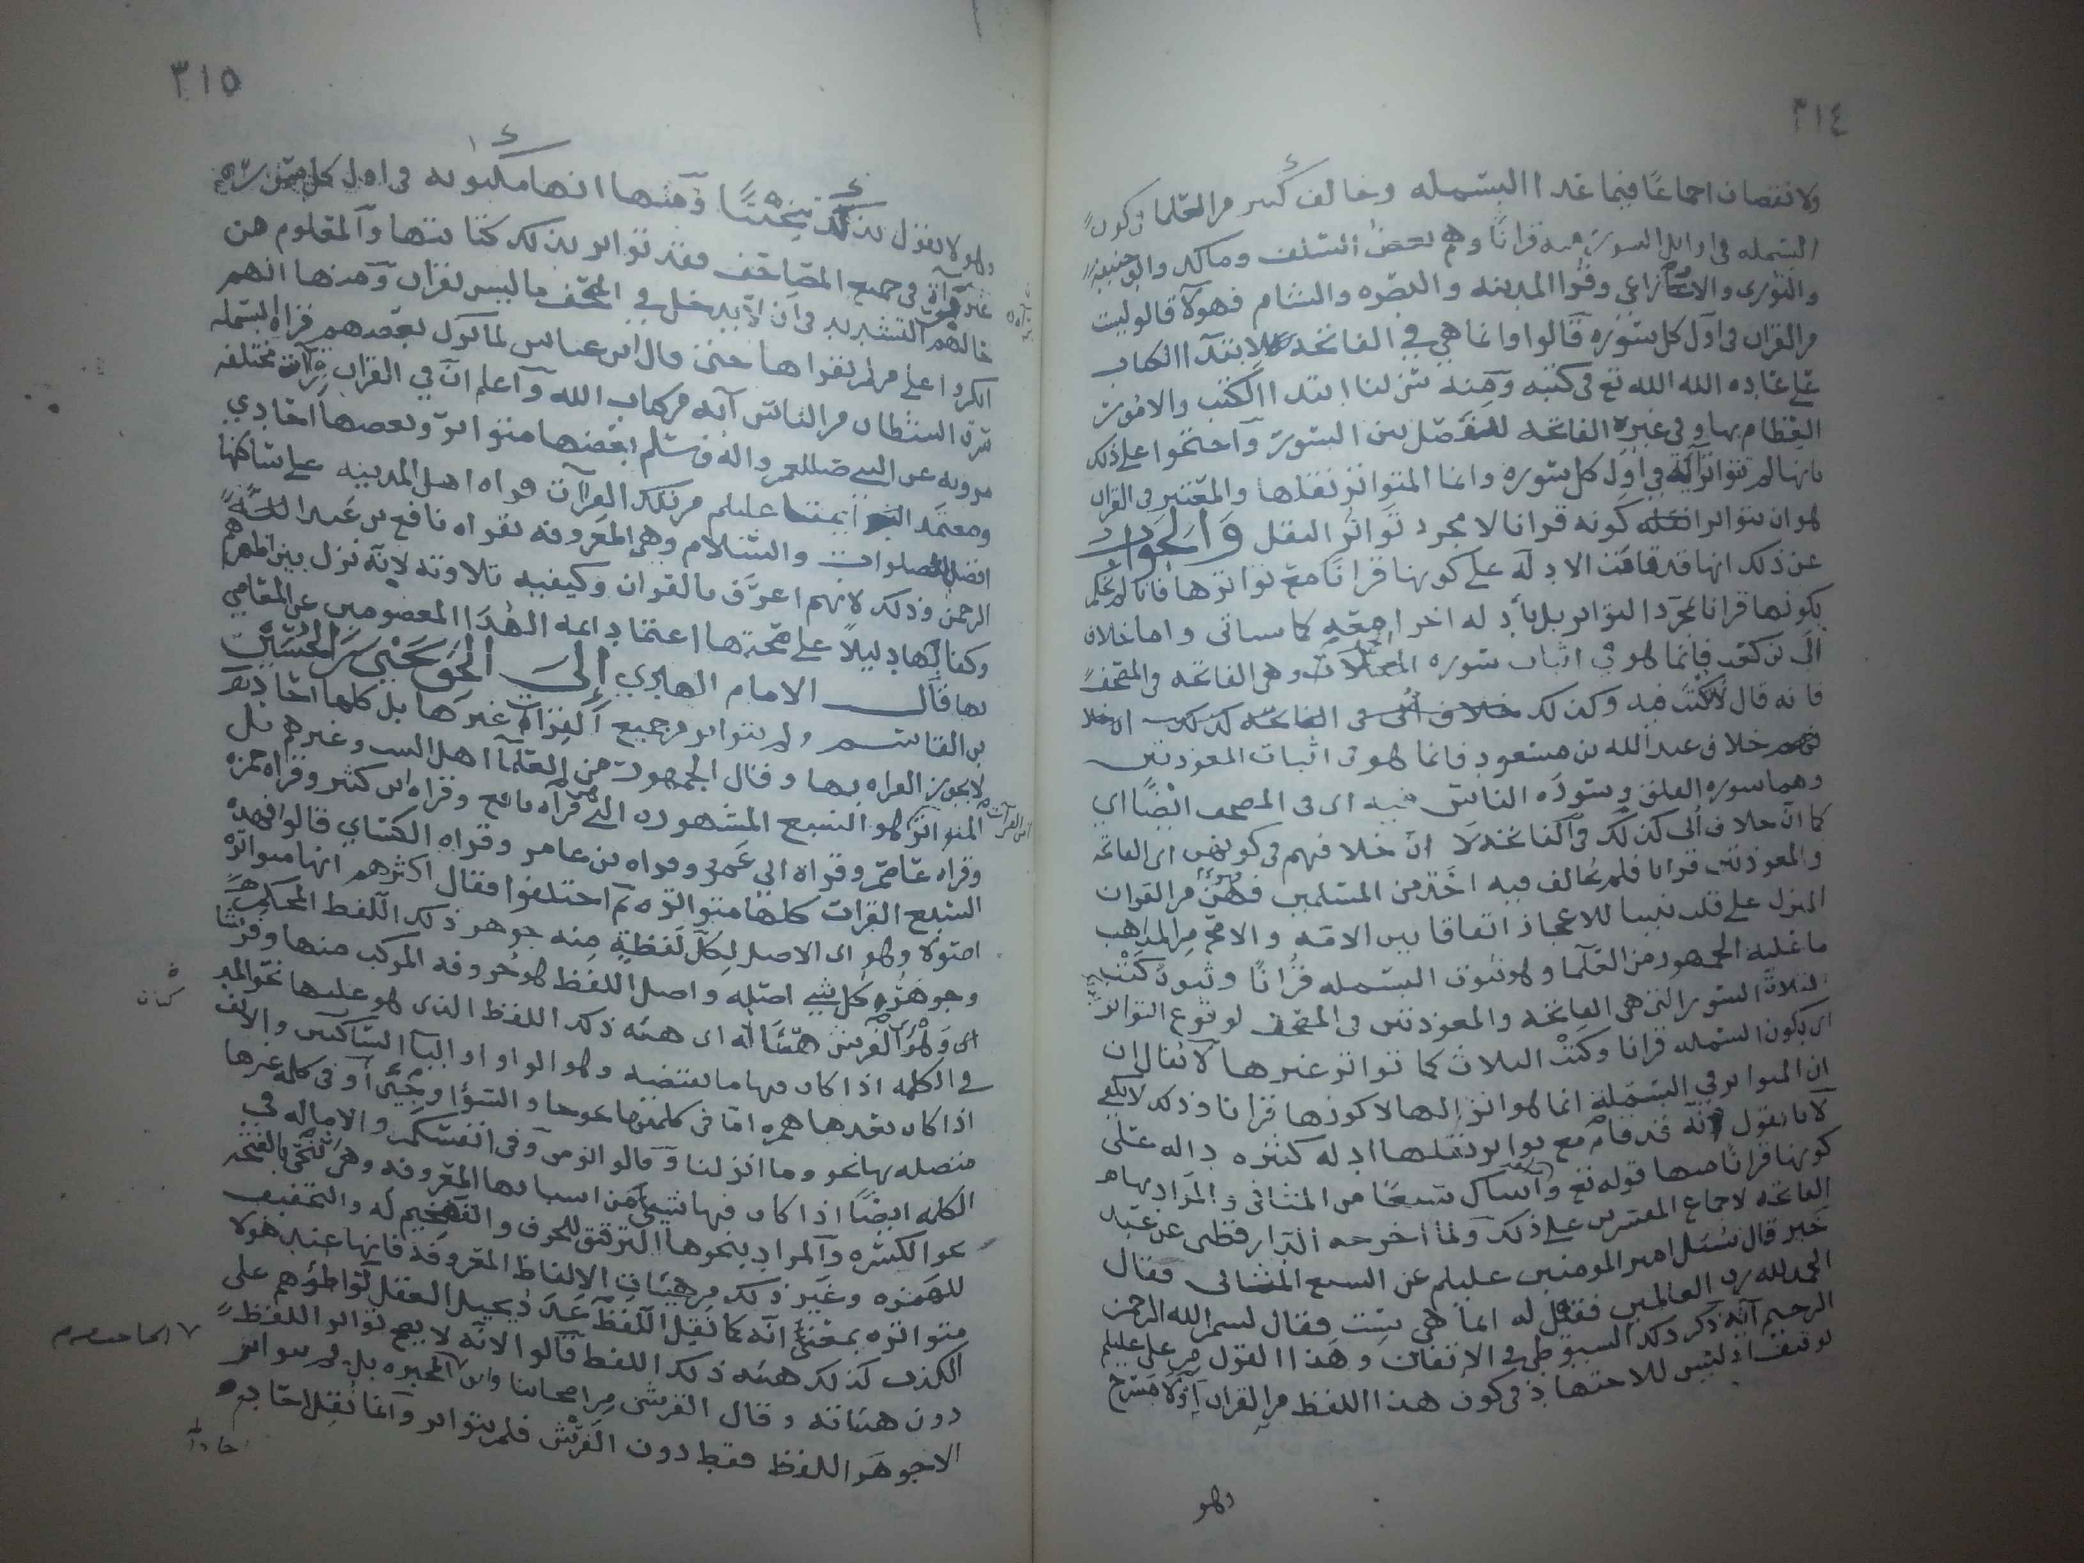 ٣١٤
ولا نقصان اجماعًا فيما عدا البسمله وخالف كثير من العلما في كون
البسمله في اوايل السور منه قرانًا وهم بعض السلف ومالك وابو حنيفه
والثورى والاوزاعي وقرا المدينه والبصره والشام فهولا قالو ليست
من القران في اول كل سوره قالوا وانما هي في الفاتحه لابتدا الكتاب
على عاده الله تع في كتبه ومنه سن لنا ابتدا الكتب والامور
العظام بها وفي غير الفاتحه للفصل بين السور واحتجوا على ذلك
بانها لم تتواتر آية في اول كل سوره وانما المتواتر نقلها والمعتبر في القران
هو ان يتواتر نقله كونه قرانا لا مجرد تواتر النقل والجواب
عن ذلك انها قد قامت الادله على كونها قرانًا مع تواترها فانا لم نحكم
بكونها قرانا بمجرد التواتر بل بأدله اخر اجمعه كما سياتي واما خلاف
أُبَي بن كعب فانما هو في اثبات سوره وهي الفاتحه في المصحف
فانه قال لا تكتب فيه وكذلك
خلاف عبد الله بن مسعود فانما هو في اثبات المعوذتين
وهما سوره الفلق وسوره الناس فيه اى في المصحف ايضًا اي
كما ان خلاف أُبى كذلك في الفاتحه لا ان خلافهم في كونهن اى الفاتحه
والمعوذتين قرانا فلم يخالف فيه احد من المسلمين فهن من القران
المنزل على قلب نبينا للاعجاز اتفاقا بين الامه والاصح من المذاهب
ما عليه الجمهور من العلما وهو ثبوت البسمله قرانًا وثبوت كَتْب
الثلاث السور التي هي الفاتحه والمعوذتين في المصحف لوقوع التواتر
اى بكون البسمله قرانا وكتب الثلاث كما تواتر غيرها لا يقال ان
ان المتواتر في البسملة انما هو انزالها لا كونها قرانا وذلك لا يكفي
لانا نقول انه قد قام مع تواتر نقلها ادله كثيره داله على
كونها قرانًا منها قوله تع ولقد اتيناك سبعًا من المثاني والمراد بها
الفاتحه لاجماع المفسرين على ذلك ولما اخرجه الدارقطني عن عبد
خير قال سُئل امير المومنين عليلم عن السبع المثانى فقال
الحمد لله رب العالمين فقيل له انما هي ست فقال بسم الله الرحمن
الرحيم آية ذكر ذلك السيوطى في الاتقان وهذا القول من علي عليلم
توقيف اذ ليس للاجتهاد في كون هذا اللفظ من القران أوّلا مسرح
وهو
٣١٥
وهو لا يقول بذلك ومنها انها مكتوبه في اول كل سوره
غير براة في جميع المصاحف فقد تواتر بذلك كتابتها والمعلوم من
حالهم التشديد في ان لا يدخل في المصحف ما ليس بقران ومنها انهم
انكروا على من لم يقراها حتى قال ابن عباس لما ترك بعضهم قراة البسمله
سرق الشيطان من الناس آيه من كتاب الله واعلم ان في القران قرآت مختلفه
مرويه عن النبي صلى الله عليه واله وسلم بعضها متواتر وبعضها احادي
ومعتمد أيمتنا عليلم من تلك القرآت قراة اهل المدينه على ساكنها
افضل الصلوات والسلام وهي المعروفه بقراه نافع بن عبد
الرحمن وذلك لانهم اعرف بالقران وكيفيه تلاوته لانه نزل بين اظهرهم
وكفا بها دليلًا على صحتها اعتماد ايمه الهدا المعصومين عن المعاصي
بها قال الامام الهادي إلى الحق يحيى بن الحسين
بن القاسم ولم يتواتر من جميع القرات غيرها بل كلها احاديه
لا يجوز القراه بها وقال الجمهور من العلمآ اهل البيت وغيرهم بل
المتواتر هو السبع المشهوره التي هي قراة نافع وقراه ابن كثير وقراه حمزه
وقراه عاصم وقراة ابي عمرو وقراه بن عامر وقراه الكسائي قالوا فهذه
السبع القرات كلها متواتره ثم اختلفوا فقال اكثرهم انها متواتره
اصولا وهو اى الاصل لكل لفظةٍ منه جوهر ذلك اللفظ
وجوهر كل شيء اصله واصل اللفظ هو حروفه المركب منها وفرشا
اى وهو الفرش هيئاته اى هيئه ذلك اللفظ الذى هو عليها نحو المد
في الكلمه اذا كان فيها ما يقتضيه وهو الواو او اليا الساكنين والالف
اذا كان بعدها همزه اما في كلمتها نحو جا والسوأ وجيء أو في كلمه غيرها
متصله بها نحو وما انزلنا وقالو انؤمن وفي انفسكم والاماله في
الكلمه ايضًا اذا كان فيها شيئ من اسبابها المعروفه وهي تنحي بالفتحه
نحو الكسره والمراد بنحوها الترقيق للحروف والتفخيم له والتخفيف
للهمزه وغير ذلك من هيئات الالفاظ المعروفة فانها عند هولا
متواتره بمعنى انه كما نقل اللفظ عدد يحيل العقل تواطؤهم على
الكذب كذلك هيئه ذلك اللفظ قالوا لانه لا يصح تواتر اللفظ
دون هيئاته وقال القرشى من اصحابنا وابن الحاجب وغيره بل لم يتواتر
الا جوهر اللفظ فقط دون الفرش فلم يتواتر وانما نقل احاديه